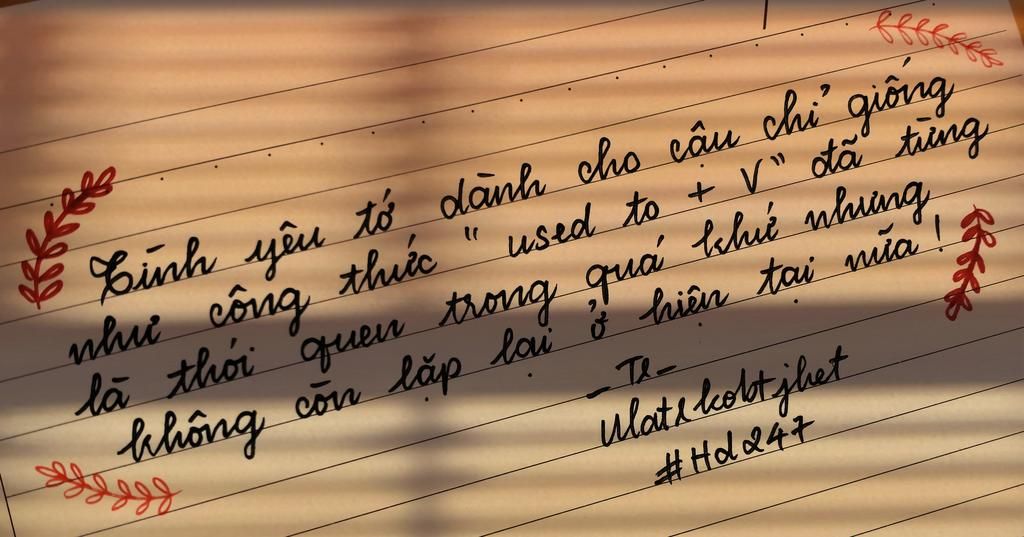 Tình yêu tớ dành cho câu chỉ giống
như công thức "used to + V" đã từng
là thói quen trong quá khứ nhưng
không còn lặp lại ở hiện tại nữa!
_Te_
#Hd247